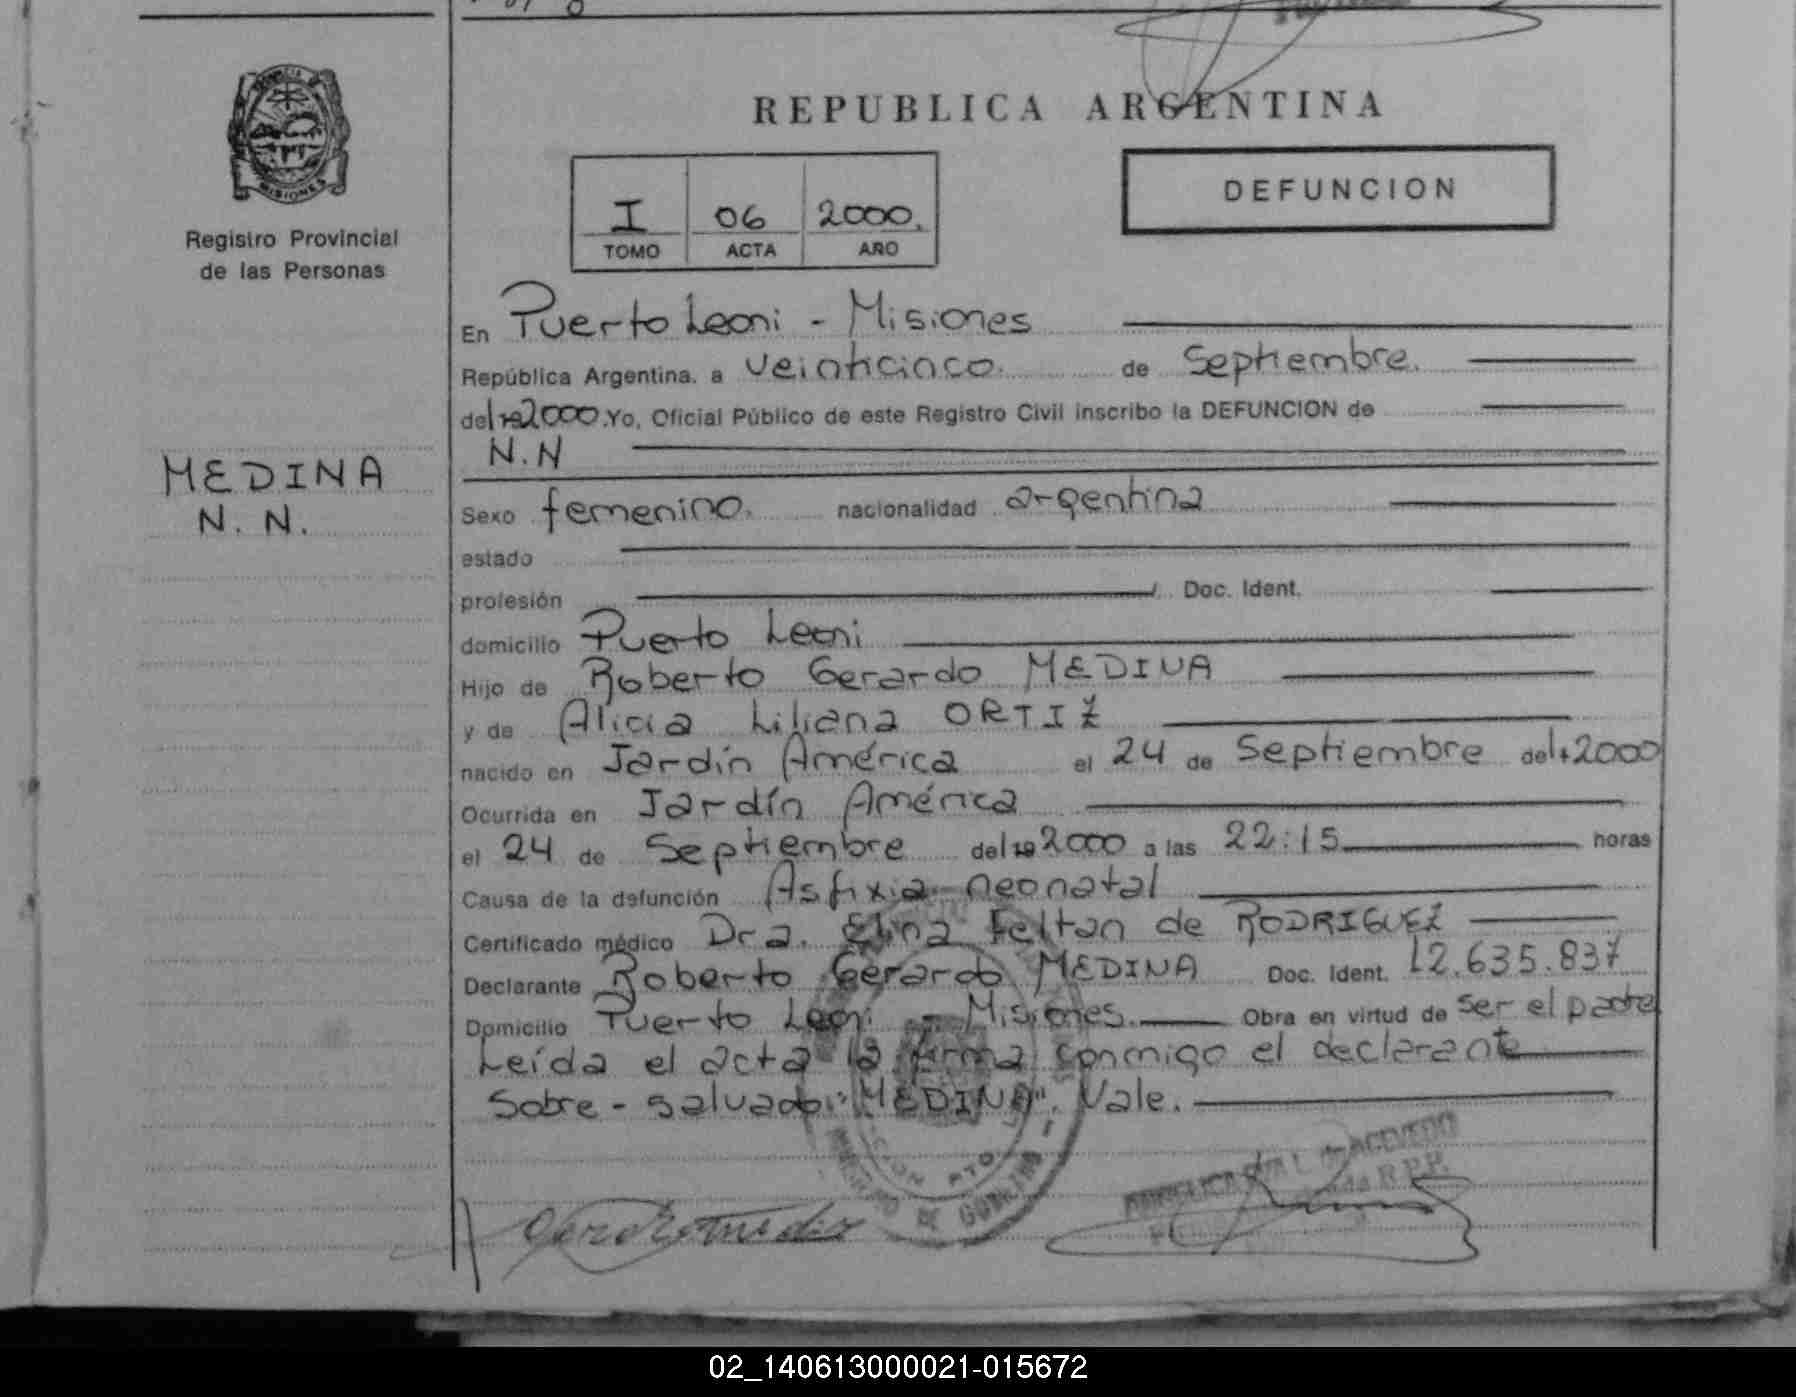 REPUBLICA ARGENTINA
MISIONES
Registro Provincial
de las Personas
I 06 2000.
TOMO ACTA AÑO
DEFUNCION
MEDINA
N. N.
En Puerto Leoni - Misiones
República Argentina, a veinticinco. de Septiembre.
del 19 2000. Yo, Oficial Público de este Registro Civil inscribo la DEFUNCION de
N.N
Sexo femenino. nacionalidad argentina
estado
profesión Doc. Ident.
domicilio Puerto Leoni
Hijo de Roberto Gerardo MEDINA
y de Alicia Liliana ORTIZ
nacido en Jardín América el 24 de Septiembre del 2000
Ocurrida en Jardín América
el 24 de Septiembre del 19 2000 a las 22:15 horas
Causa de la defunción Asfixia neonatal
Certificado médico Dra. Elina Feltan de RODRIGUEZ
Declarante Roberto Gerardo MEDINA Doc. Ident. 12.635.837
Domicilio Puerto Leoni - Misiones. Obra en virtud de ser el padre
Leída el acta la firma conmigo el declarante
Sobre - salvado: "MEDINA". Vale.
MINISTERIO DE GOBIERNO
de ACEVEDO
R.P.P.
02_140613000021-015672